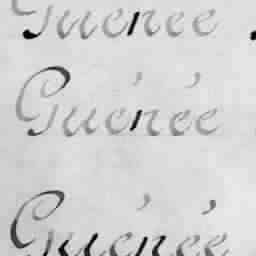 Guénée
Guénée
Guénée